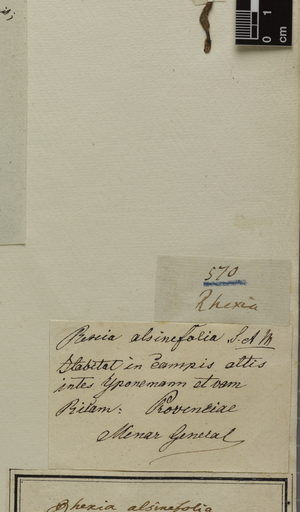 0 1
cm
570
Rhexia
Rexia alsinefolia S. A. M
Habitat in Campis altis
intes Yponemann et vam
Ritam: Provinciae
Menar General
Rhexia alsinefolia